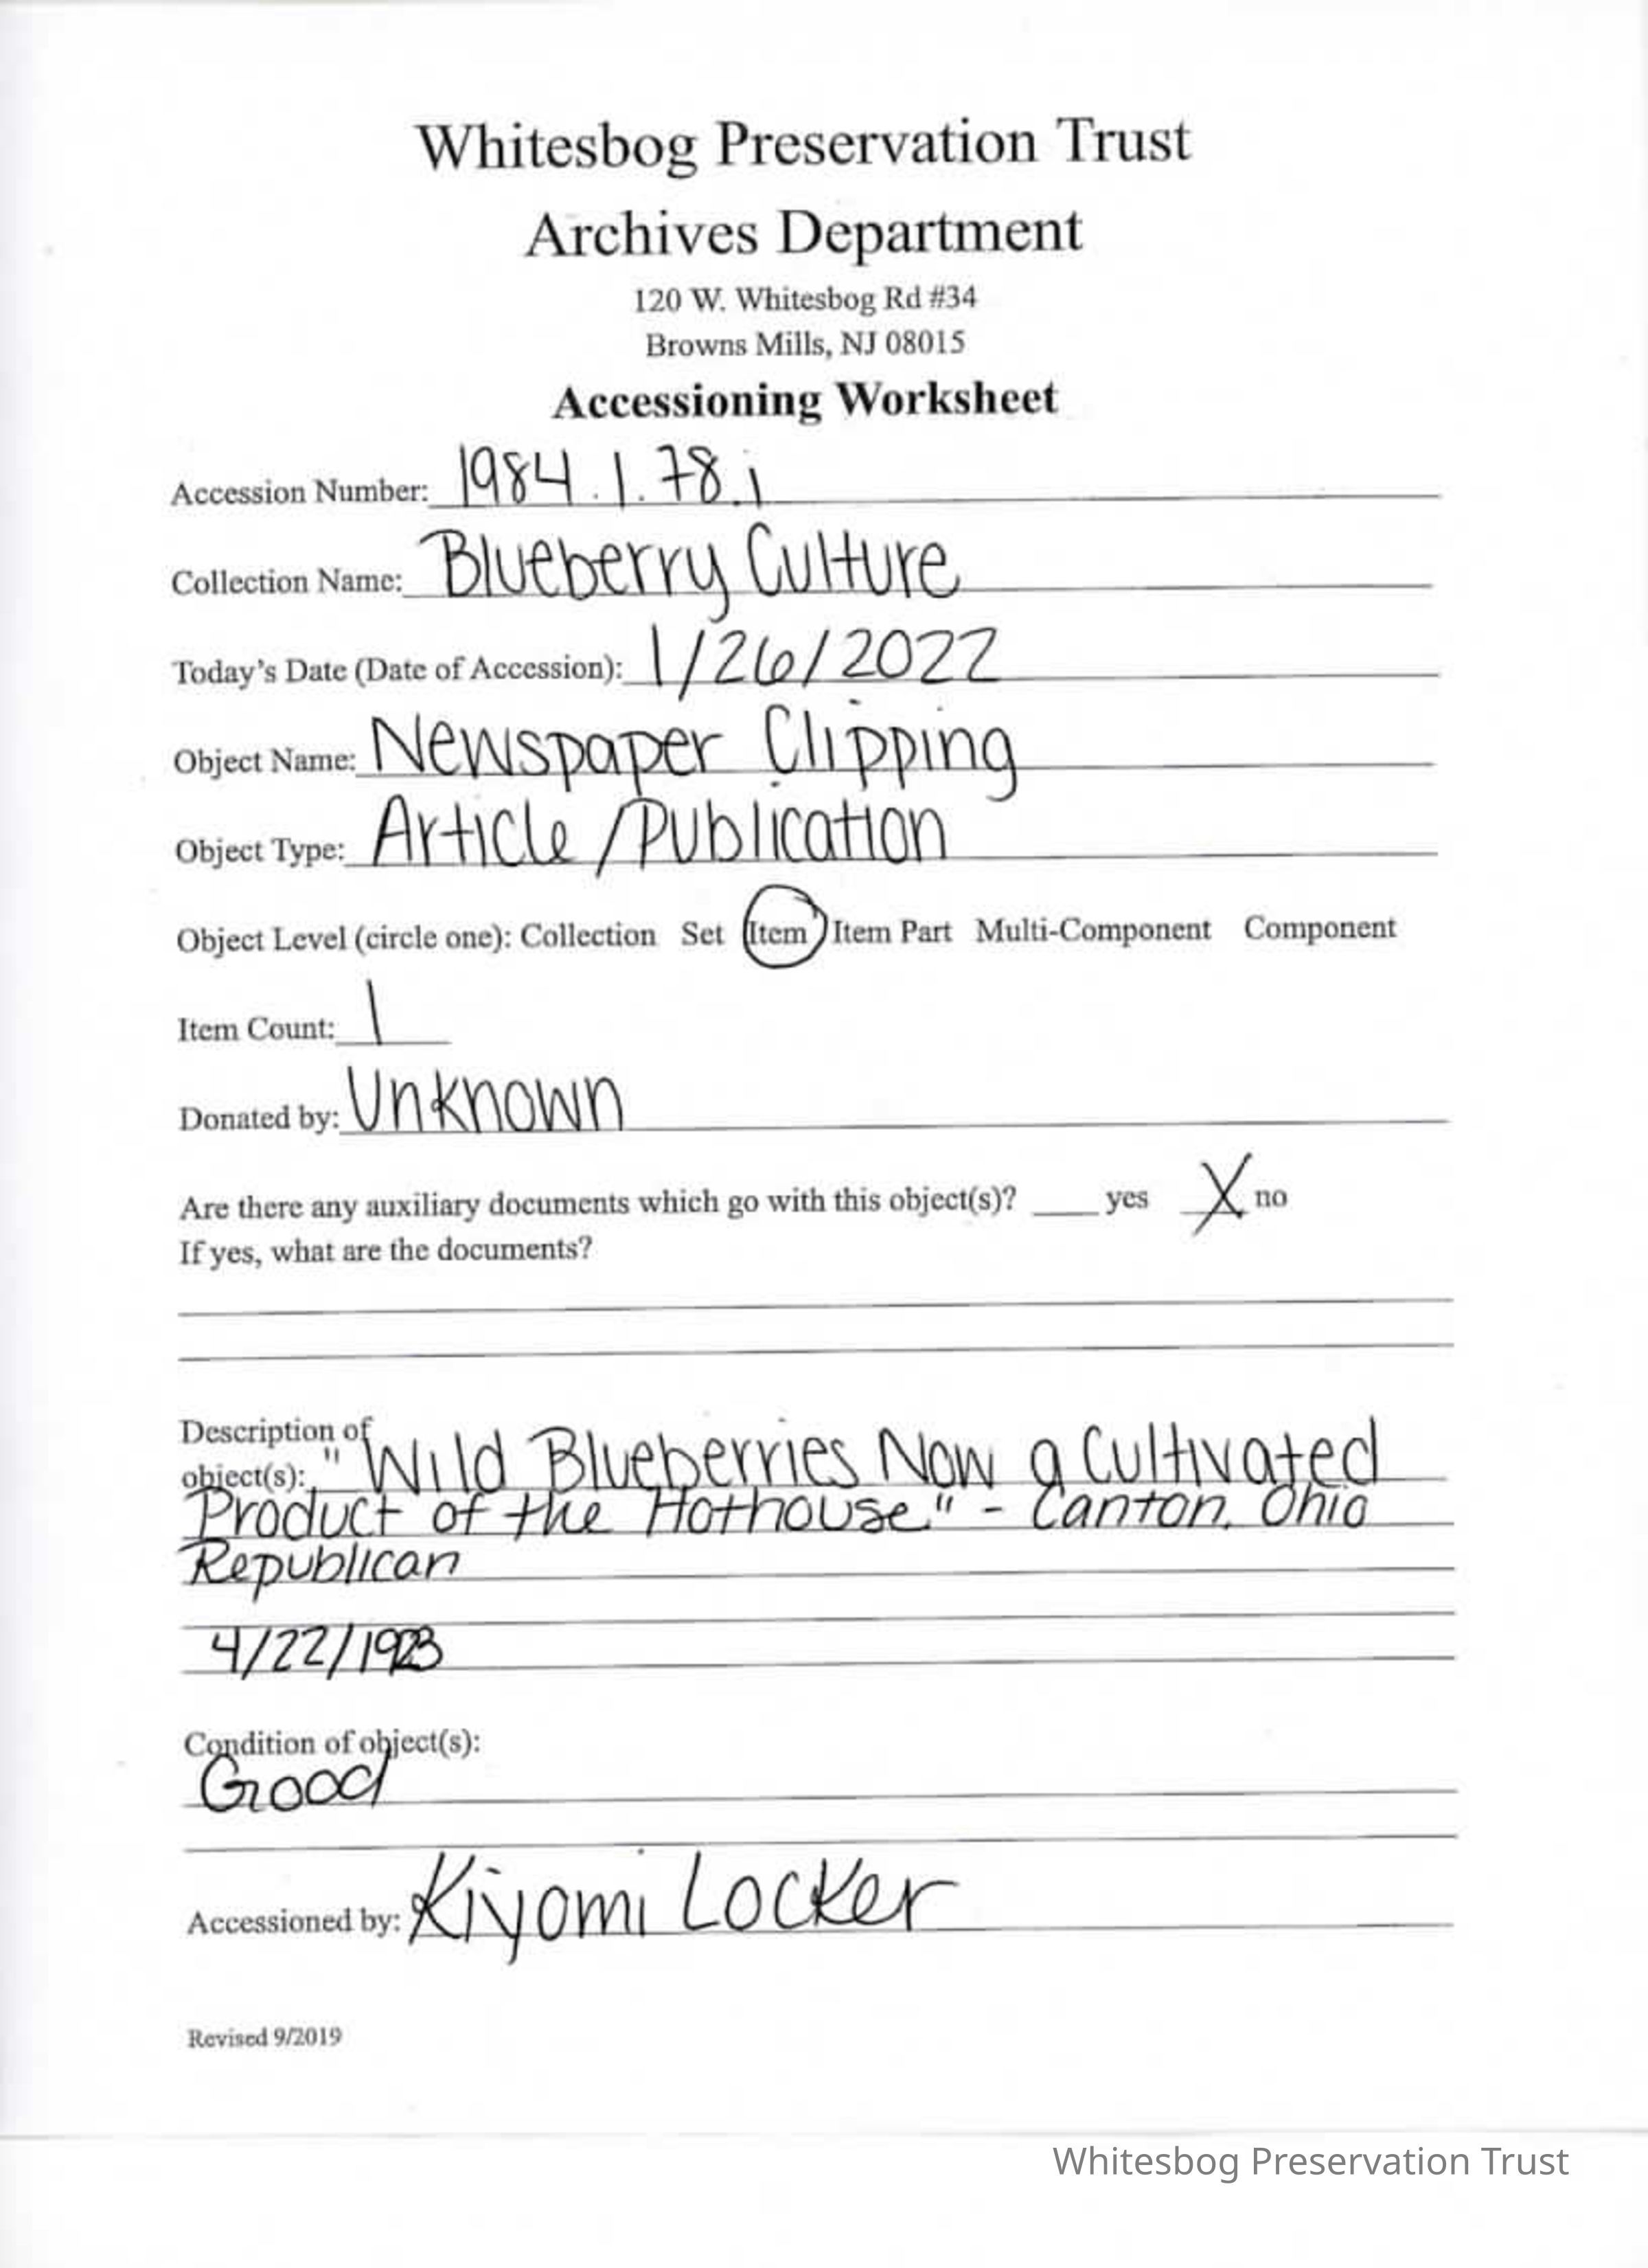 Whitesbog Preservation Trust
Archives Department
120 W. Whitesbog Rd #34
Browns Mills, NJ 08015
Accessioning Worksheet
Accession Number: 1984.1.78.i
Collection Name: Blueberry Culture
Today's Date (Date of Accession): 1/26/2022
Object Name: Newspaper Clipping
Object Type: Article/Publication
Object Level (circle one): Collection Set Item Item Part Multi-Component Component
Item Count: 1
Donated by: Unknown
Are there any auxiliary documents which go with this object(s)? ____ yes X no
If yes, what are the documents?
Description of
object(s): "Wild Blueberries Now a Cultivated
Product of the Hothouse" - Canton, Ohio
Republican
4/22/1923
Condition of object(s):
Good
Accessioned by: Kiyomi Locker
Revised 9/2019
Whitesbog Preservation Trust